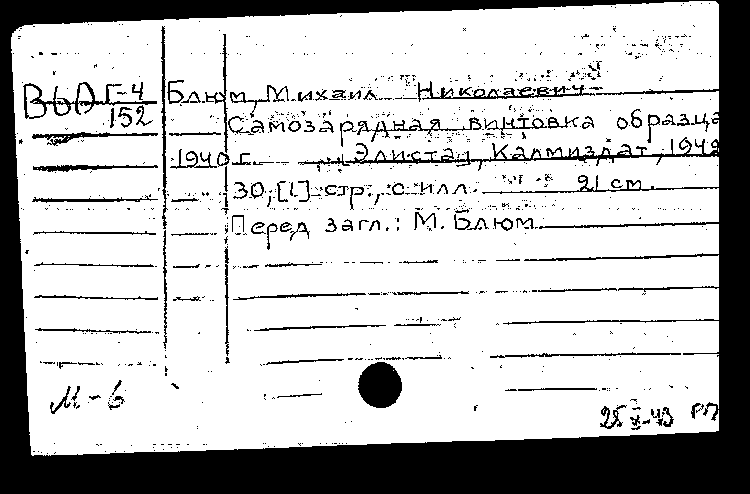 В60 Г-4
152
Блюм, Михаил Николаевич
Самозарядная винтовка образца
1940 г. Элиста, Калмиздат, 1942
30, [1] стр., с илл. 21 см.
Перед загл.: М. Блюм.
М-6
25 X-43 РП